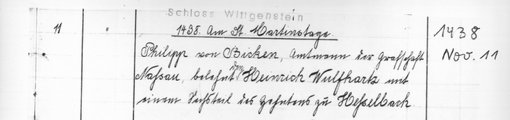 Schloss Wittgenstein
11 1438. Am St. Martinstage 1438
Philipp von Bicken, Amtmann der Grafschaft Nov. 11
Nassau, belehnt den Heinrich Wulfhartz mit
einem Sechsteil des Zehntens zu Hesselbach